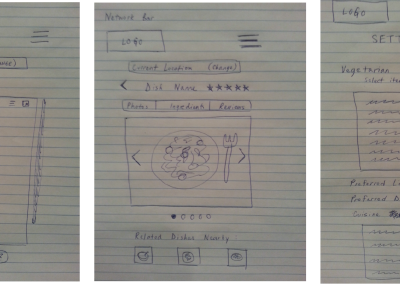 Network Bar
LOGO
Current Location (Change)
Dish Name
Photos Ingredients Reviews
Related Dishes Nearby
LOGO
SETT
Vegetarian
Select
Preferred
Preferred
Cuisine